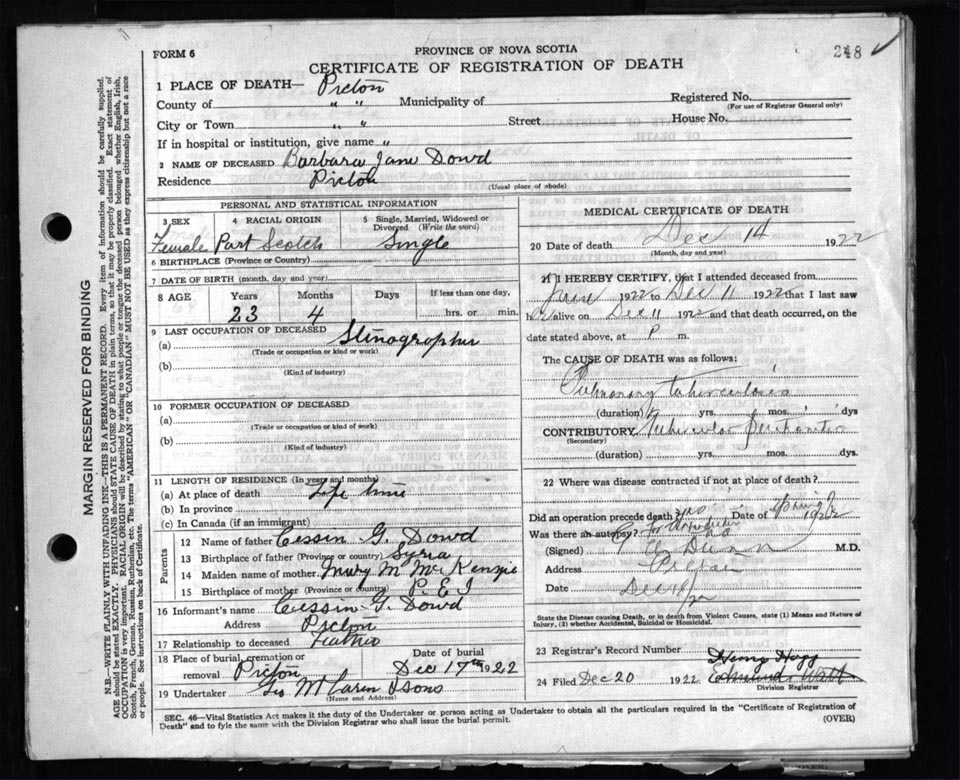 FORM 6
PROVINCE OF NOVA SCOTIA
CERTIFICATE OF REGISTRATION OF DEATH
248
1 PLACE OF DEATH— Pictou
County of " " Municipality of
Registered No.
(For use of Registrar General only)
City or Town " " Street House No.
If in hospital or institution, give name "
2 NAME OF DECEASED Barbara Jane Dowd
Residence Pictou
(Usual place of abode)
PERSONAL AND STATISTICAL INFORMATION
3 SEX
Female
4 RACIAL ORIGIN
Part Scotch
5 Single, Married, Widowed or Divorced (Write the word)
Single
6 BIRTHPLACE (Province or Country)
7 DATE OF BIRTH (month, day and year)
8 AGE Years Months Days If less than one day,
23 4 hrs. or min.
9 LAST OCCUPATION OF DECEASED
(a) Stenographer
(Trade or occupation or kind of work)
(b)
(Kind of industry)
10 FORMER OCCUPATION OF DECEASED
(a)
(Trade or occupation or kind of work)
(b)
(Kind of industry)
11 LENGTH OF RESIDENCE (In years and months)
(a) At place of death Life time
(b) In province
(c) In Canada (if an immigrant)
Parents
12 Name of father Cissin G. Dowd
13 Birthplace of father (Province or country) Syria
14 Maiden name of mother Mary M McKenzie
15 Birthplace of mother (Province or country) P. E I
16 Informant's name Cissin G. Dowd
Address Pictou
17 Relationship to deceased Father
18 Place of burial, cremation or removal Pictou
Date of burial
Dec 17th 1922
19 Undertaker Geo McLaren & Sons
(Name and Address)
MEDICAL CERTIFICATE OF DEATH
20 Date of death Dec 14 1922
(Month, day and year)
21 I HEREBY CERTIFY, that I attended deceased from
June 1922 to Dec 11 1922 that I last saw
her alive on Dec 11 1922 and that death occurred, on the
date stated above, at P m.
The CAUSE OF DEATH was as follows:
Pulmonary tuberculosis
(duration) yrs. mos. dys
CONTRIBUTORY Tubercular peritonitis
(Secondary)
(duration) yrs. mos. dys.
22 Where was disease contracted if not at place of death?
Did an operation precede death? yes Date of Spring 1922
Was there an autopsy? no
(Signed) Dunn M.D.
Address Pictou
Date Dec 16/22
State the Disease causing Death, or in death from Violent Causes, state (1) Means and Nature of Injury, (2) whether Accidental, Suicidal or Homicidal.
23 Registrar's Record Number
Henry Hogg
24 Filed Dec 20 1922
Division Registrar
SEC. 46—Vital Statistics Act makes it the duty of the Undertaker or person acting as Undertaker to obtain all the particulars required in the "Certificate of Registration of
Death" and to fyle the same with the Division Registrar who shall issue the burial permit.
(OVER)
MARGIN RESERVED FOR BINDING
N.B.—WRITE PLAINLY WITH UNFADING INK—THIS IS A PERMANENT RECORD. Every item of information should be carefully supplied.
AGE should be stated EXACTLY. PHYSICIANS should STATE CAUSE OF DEATH in plain terms, so that it may be properly classified. Exact statement of
OCCUPATION is very important. RACIAL ORIGIN will be described by stating to what people or tongue the deceased person belonged whether English, Irish,
Scotch, French, German, Russian, Ruthenian, etc. The terms "AMERICAN" OR "CANADIAN" MUST NOT BE USED as they express citizenship but not a race
or people. See instructions on back of Certificate.